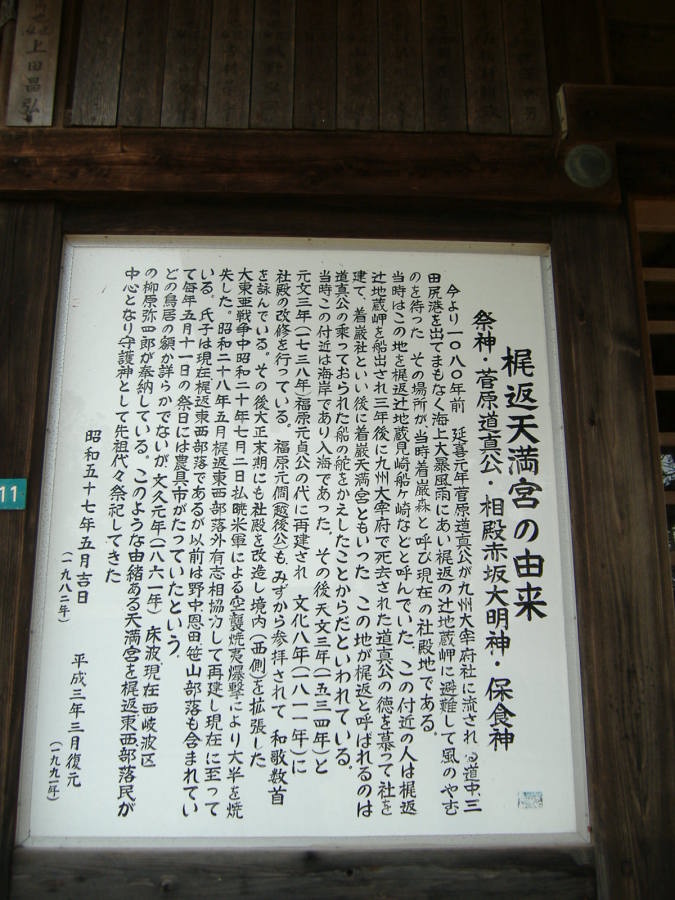 梶返天満宮の由来
祭神・菅原道真公・相殿赤坂大明神・保食神
今より一〇八〇年前 延喜元年菅原道真公が九州大宰府社に流され 道中、三
田尻港を出てまもなく海上大暴風雨にあい梶返の辻地蔵岬に避難して風のやむ
のを待った その場所が、当時着巌森と呼び現在の社殿地である。
当時はこの地を梶返辻地蔵見崎船ヶ崎などと呼んでいた、この付近の人は梶返
辻地蔵岬を船出され三年後に九州大宰府で死去された道真公の徳を慕って社を
建て、着巌社といい後に着巌天満宮ともいった この地が梶返と呼ばれるのは
道真公の乗っておられた船の舵をかえしたことからだといわれている。
当時この付近は海岸であり入海であった、その後天文三年(一五三四年)と
元文三年(一七三八年)福原元貞公の代に再建され 文化八年(一八一一年)に
社殿の改修を行っている。福原元僴(越後公)も、みずから参拝されて和歌数首
を詠んでいる。その後大正末期にも社殿を改造し境内(西側)を拡張した
大東亜戦争中昭和二十年七月二日払暁米軍による空襲焼夷爆撃により大半を焼
失した。昭和二十八年五月梶返東西部落外有志相協力して再建し現在に至って
いる。氏子は現在梶返東西部落であるが以前は野中、恩田、笹山部落も含まれてい
て毎年五月十一日の祭日には農具市がたっていたという、
どの鳥居の額か詳らかでないが、文久元年(一八六一年)床波現在西岐波区
の柳原弥四郎が奉納している。このような由緒ある天満宮を梶返東西部落民が
中心となり守護神として先祖代々祭祀してきた
昭和五十七年五月吉日
(一九八二年)
平成三年三月復元
(一九九一年)
上田昌弘
11